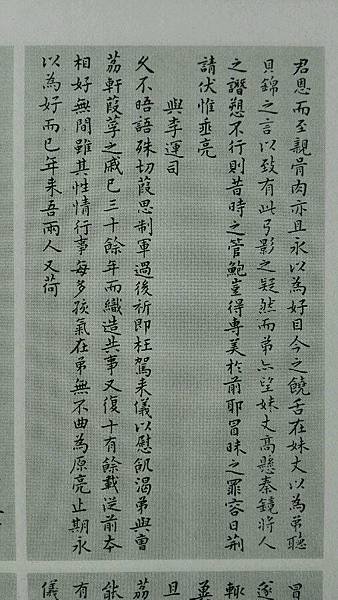 君恩而至親骨肉亦且永以為好目今之饒舌在妹丈以為弟聽
貝錦之言以致有此弓影之疑然而弟亦望妹丈高懸秦鏡將人
之譖愬不行則昔時之管鮑豈得專美於前耶冒昧之罪容日荆
請伏惟垂亮
與李運司
久不晤語殊切葭思制軍過後祈即枉駕來儀以慰飢渴弟與曹
荔軒葭莩之戚已三十餘年而織造共事又復十有餘載從前本
相好無間雖其性情行事每多孩氣在弟無不曲為原亮止期永
以為好而已年来吾兩人又荷
冒
遂
輒
奠
且
荔
能
有
儀